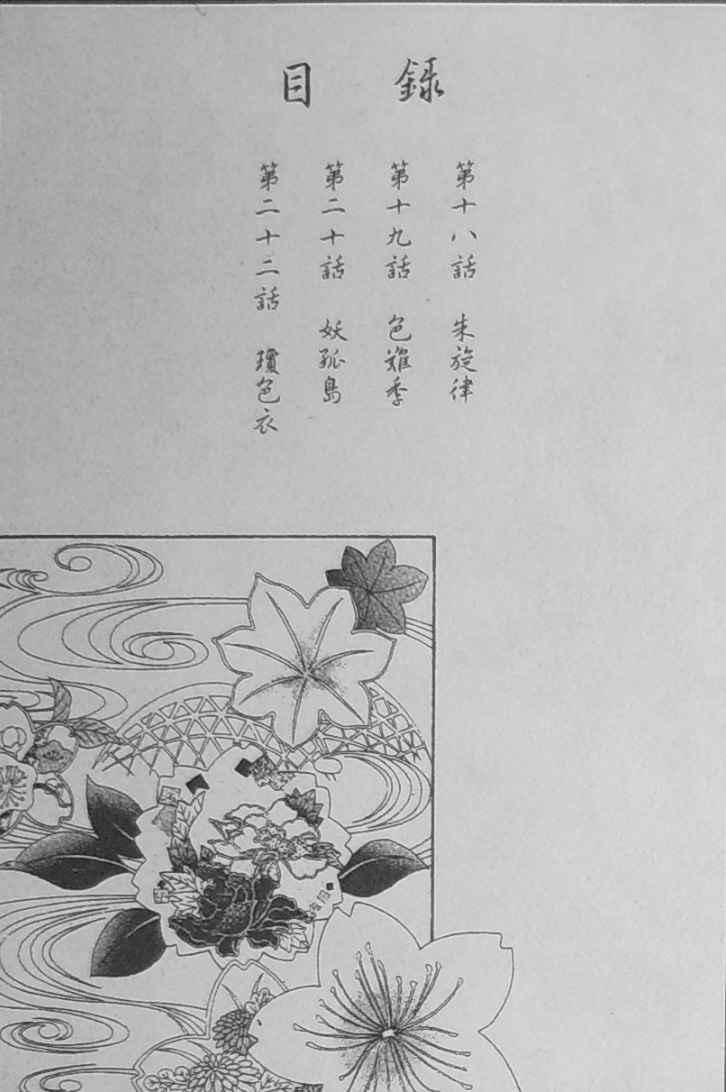 目錄
第十八話 朱旋律
第十九話
第二十話 妖孤島
第二十二話 瓊色衣